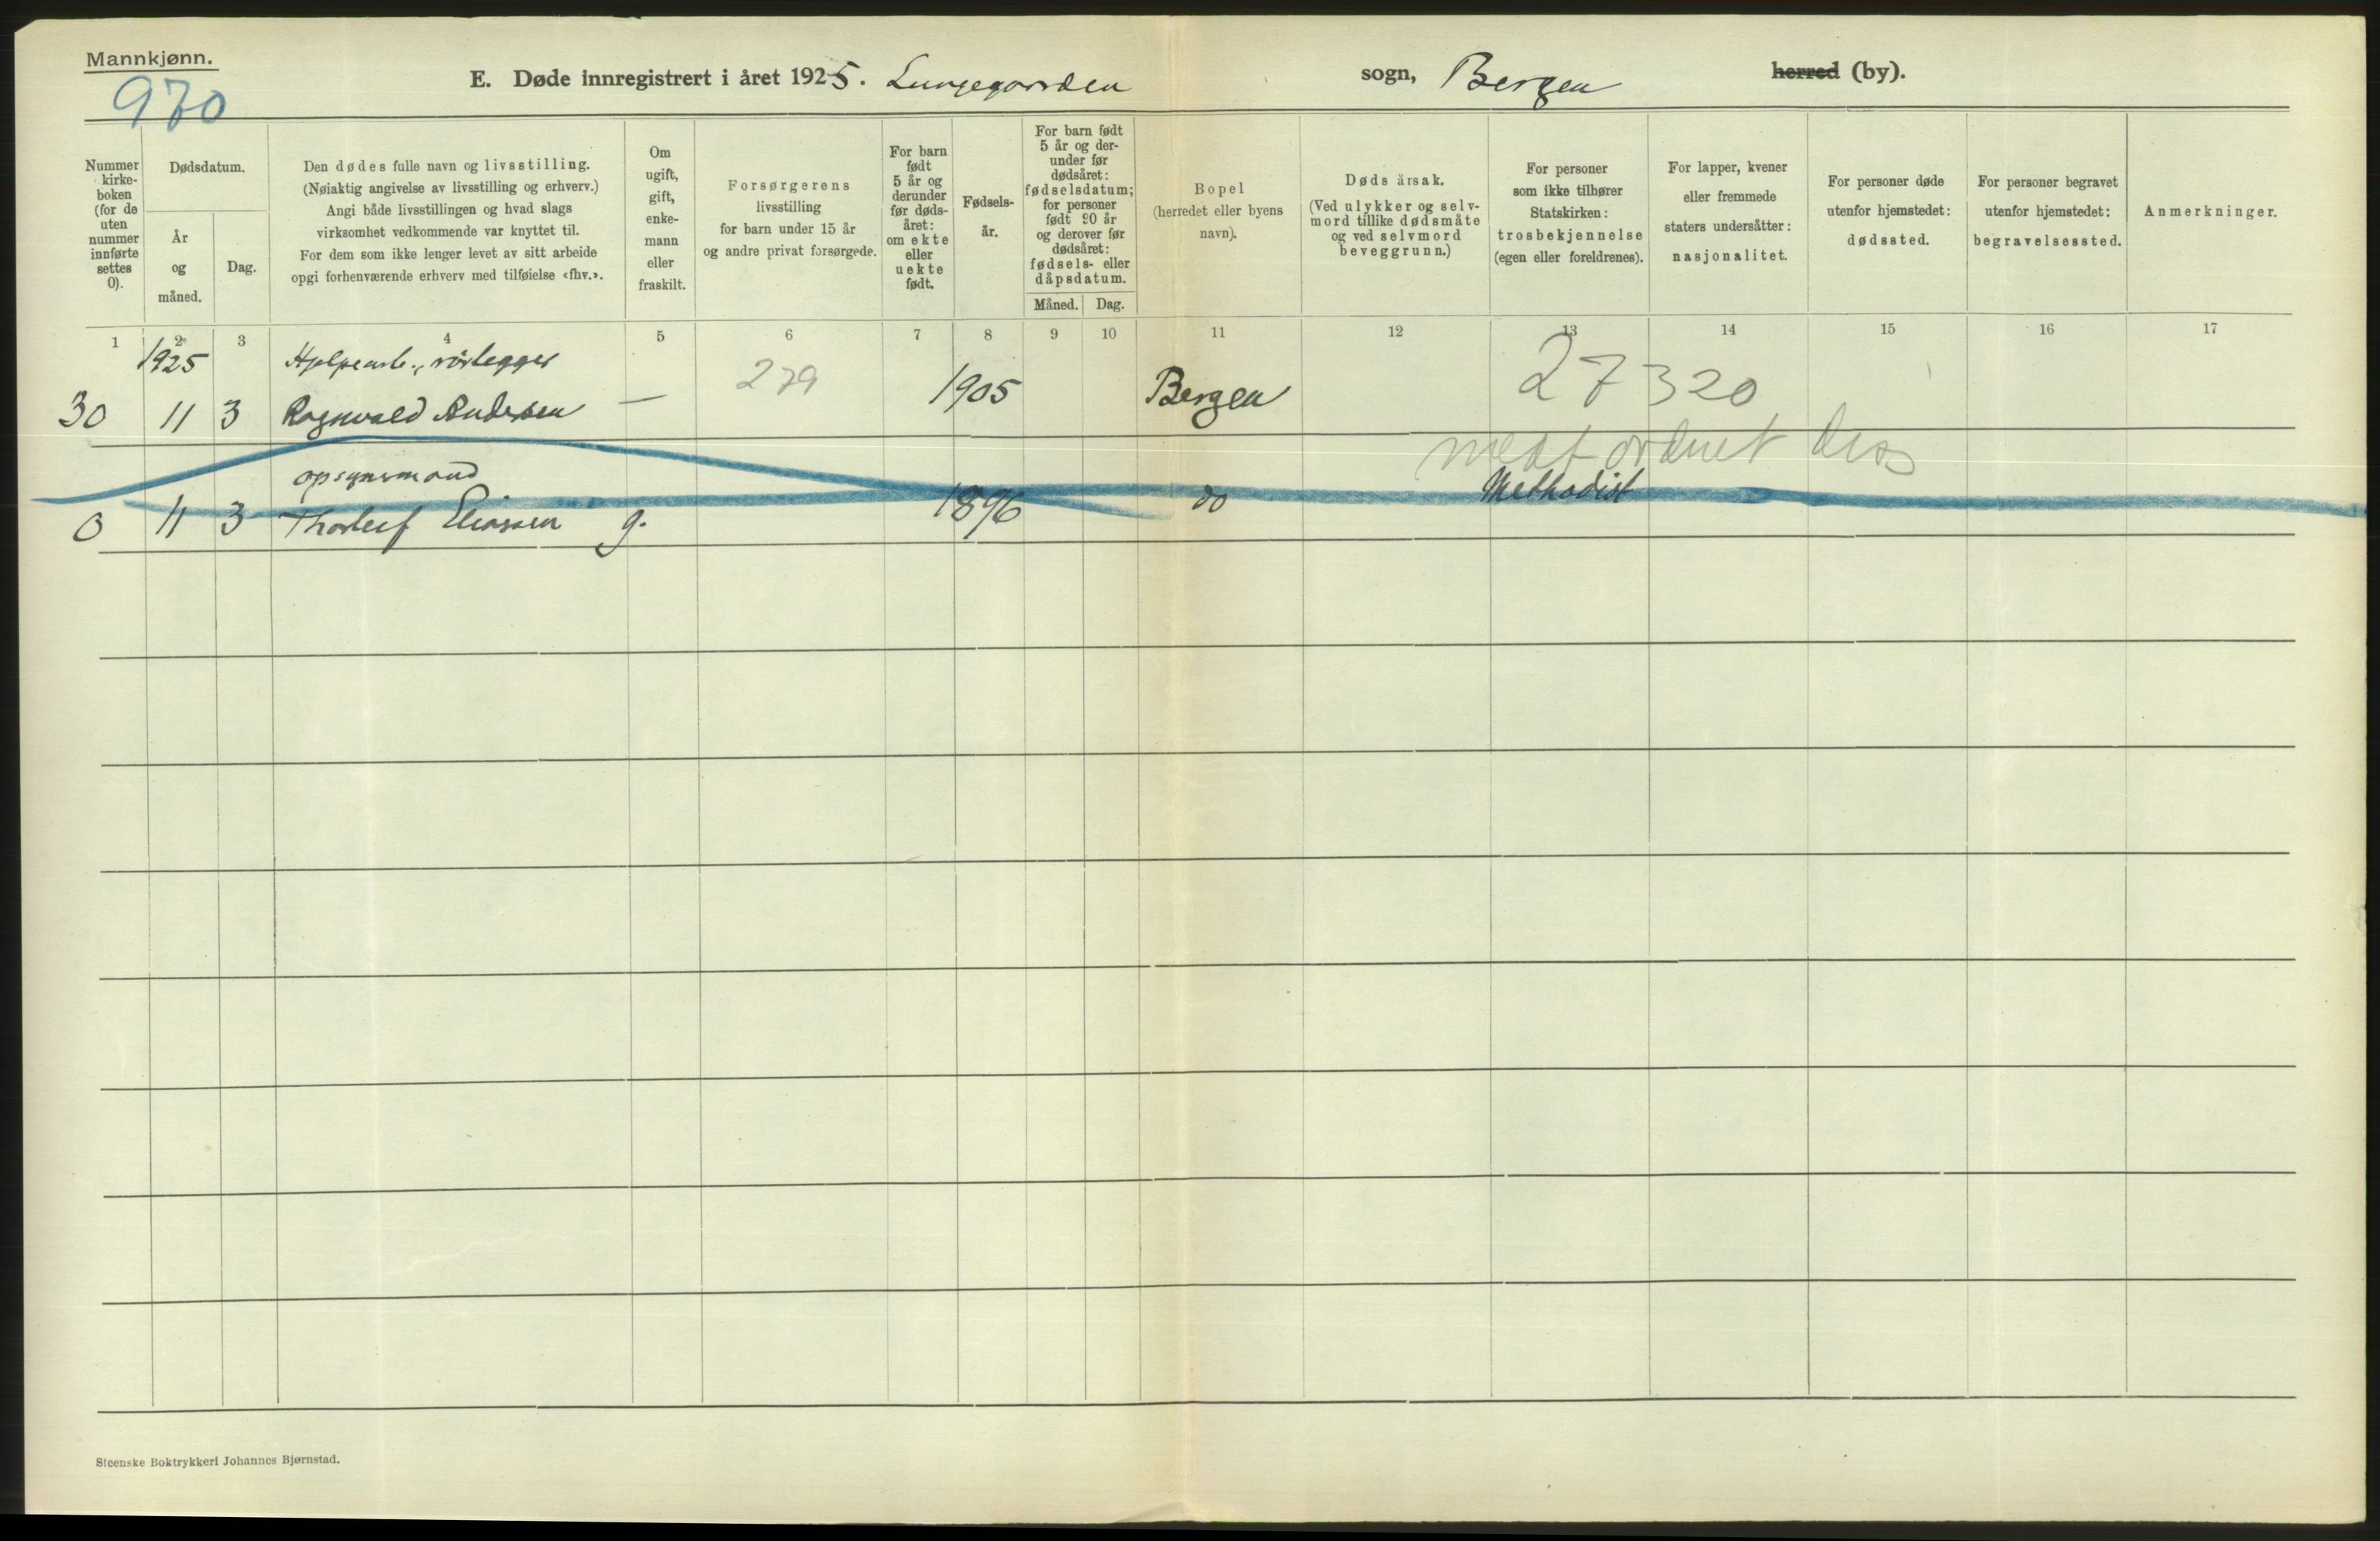 Mannkjønn.
970
E. Døde innregistrert i året 1925. Lungegaarden sogn, Bergen herred (by).
Nummer
kirke-
boken
(for de
uten
nummer
innførte
settes
0).
Dødsdatum.
År
og
måned.
Dag.
Den dødes fulle navn og livsstilling.
(Nøiaktig angivelse av livsstilling og erhverv.)
Angi både livsstillingen og hvad slags
virksomhet vedkommende var knyttet til.
For dem som ikke lenger levet av sitt arbeide
opgi forhenværende erhverv med tilføielse «fhv.».
Om
ugift,
gift,
enke-
mann
eller
fraskilt.
Forsørgerens
livsstilling
for barn under 15 år
og andre privat forsørgede.
For barn
født
5 år og
derunder
før døds-
året:
om ekte
eller
uekte
født.
Fødsels-
år.
For barn født
5 år og der-
under før
dødsåret:
fødselsdatum;
for personer
født 90 år
og derover før
dødsåret:
fødsels- eller
dåpsdatum.
Måned. Dag.
Bopel
(herredet eller byens
navn).
Dødsårsak.
(Ved ulykker og selv-
mord tillike dødsmåte
og ved selvmord
beveggrunn.)
For personer
som ikke tilhører
Statskirken:
trosbekjennelse
(egen eller foreldrenes).
For lapper, kvener
eller fremmede
staters undersåtter:
nasjonalitet.
For personer døde
utenfor hjemstedet:
dødssted.
For personer begravet
utenfor hjemstedet:
begravelsessted.
Anmerkninger.
1 2 3 4 5 6 7 8 9 10 11 12 13 14 15 16 17
1925 Hjelpearb., rørlegger 279 27320
30 11 3 Ragnvald Andersen — 1905 Bergen
opsynsmand Methodist
0 11 3 Thorleif Eliassen g. 1896 do
Steenske Boktrykkeri Johannes Bjørnstad.